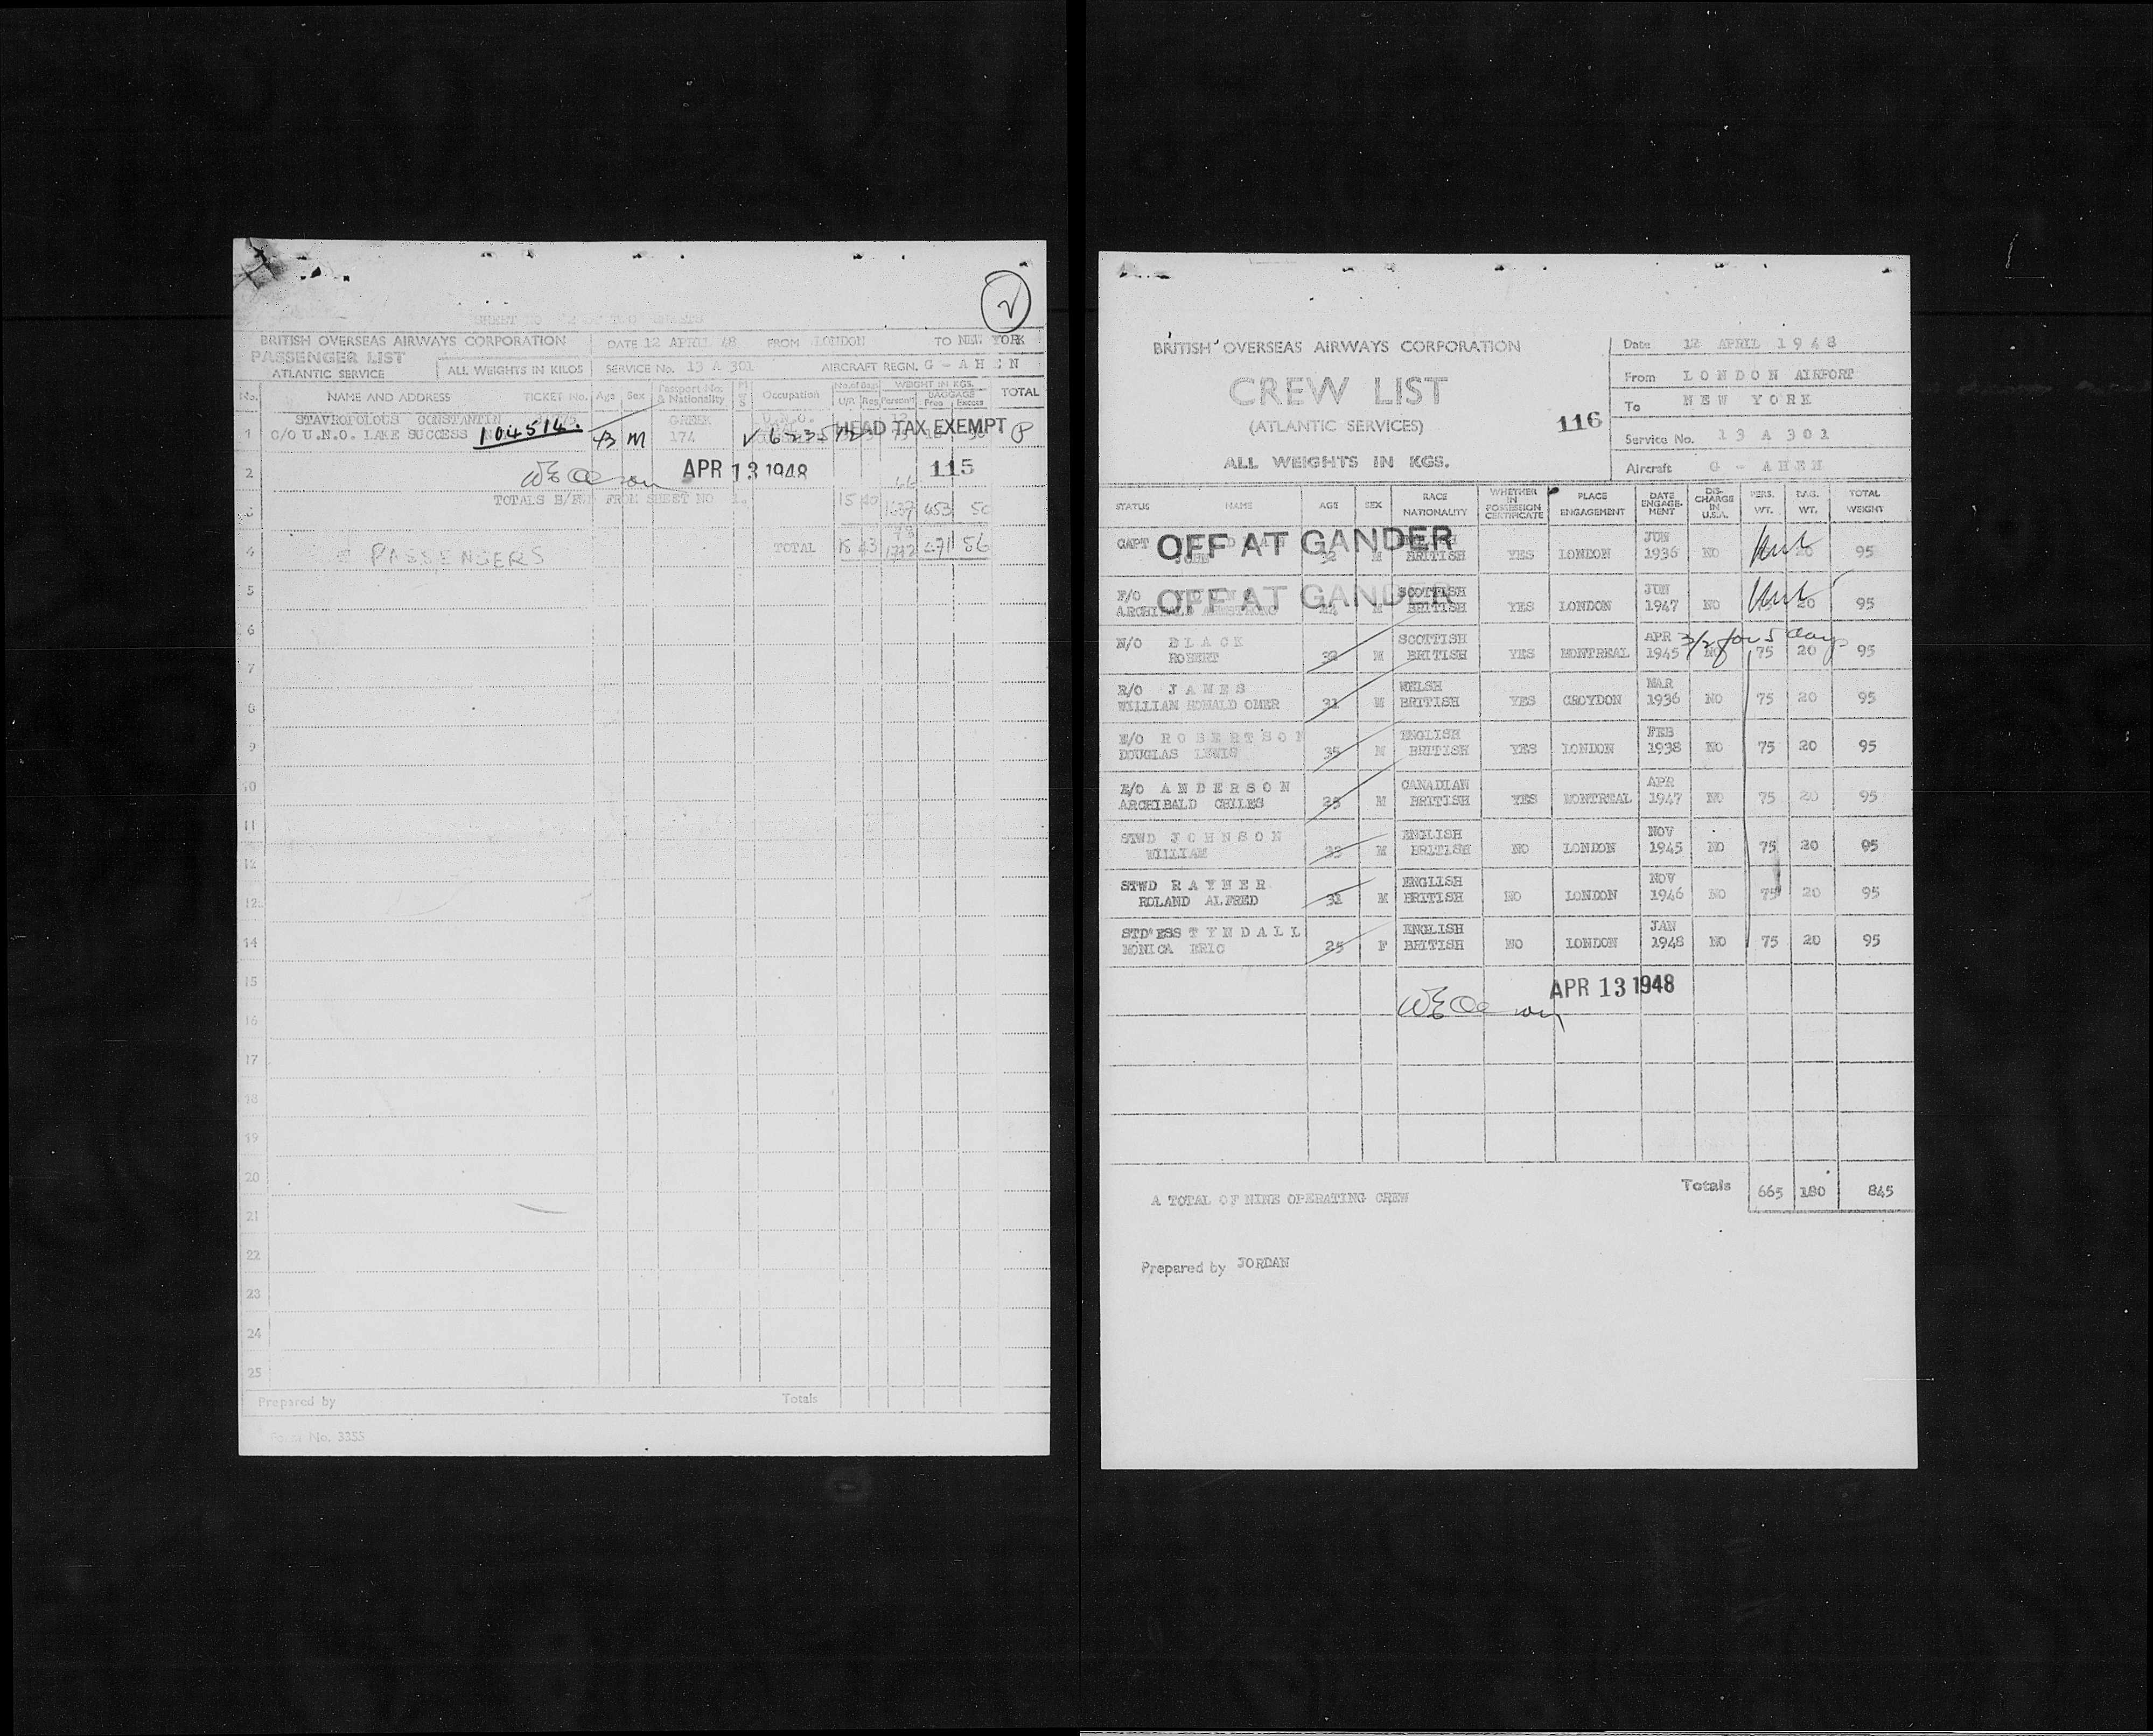 SHEET NO 2 OF TWO SHEETS
BRITISH OVERSEAS AIRWAYS CORPORATION
PASSENGER LIST
ATLANTIC SERVICE
ALL WEIGHTS IN KILOS
DATE 12 APRIL 48 FROM LONDON TO NEW YORK
SERVICE No. 19 A 301 AIRCRAFT REGN. G - A H E N
No. NAME AND ADDRESS TICKET No. Age Sex Passport No. & Nationality Occupation No. of Bags U/R Reg WEIGHT IN KGS. Person'l BAGGAGE Free Excess TOTAL
STAVROPOLOUS CONSTANTIN GREEK U.N.O.
1 C/O U.N.O. LAKE SUCCESS 104514. 43 M 174 HEAD TAX EXEMPT
2 APR 13 1948 115
TOTALS B/FD FROM SHEET NO 1. 15 40
3 1637 453 50
4 PASSENGERS TOTAL 15 43 471 56
5
6
7
8
9
10
11
12
12
14
15
16
17
18
19
20
21
22
23
24
25
Prepared by Totals
Form No. 3355
BRITISH OVERSEAS AIRWAYS CORPORATION
CREW LIST
(ATLANTIC SERVICES)
ALL WEIGHTS IN KGS.
116
Date 12 APRIL 1948
From LONDON AIRPORT
To NEW YORK
Service No. 19 A 301
Aircraft G - AHEN
STATUS NAME AGE SEX RACE NATIONALITY WHETHER IN POSSESSION CERTIFICATE PLACE ENGAGEMENT DATE ENGAGE-MENT DIS-CHARGE IN U.S.A. PERS. WT. BAG. WT. TOTAL WEIGHT
CAPT OFF AT GANDER JUN
32 M BRITISH YES LONDON 1936 NO 20 95
F/O OFF AT GANDER SCOTTISH JUN
ARCHIBALD ARMSTRONG M BRITISH YES LONDON 1947 NO 20 95
N/O BLACK SCOTTISH APR 3/2 for 5 days
ROBERT 32 M BRITISH YES MONTREAL 1945 NO 75 20 95
R/O JAMES WELSH MAR
WILLIAM RONALD OMER 31 M BRITISH YES CROYDON 1936 NO 75 20 95
E/O ROBERTSON ENGLISH FEB
DOUGLAS LEWIS 35 M BRITISH YES LONDON 1938 NO 75 20 95
E/O ANDERSON CANADIAN APR
ARCHIBALD 25 M BRITISH YES MONTREAL 1947 NO 75 20 95
STWD JOHNSON ENGLISH NOV
WILLIAM 33 M BRITISH NO LONDON 1945 NO 75 20 95
STWD RAYNER ENGLISH NOV
ROLAND ALFRED 31 M BRITISH NO LONDON 1946 NO 75 20 95
STD'ESS TYNDALL ENGLISH JAN
MONICA ERIC 25 F BRITISH NO LONDON 1948 NO 75 20 95
APR 13 1948
A TOTAL OF NINE OPERATING CREW Totals 665 180 845
Prepared by JORDAN